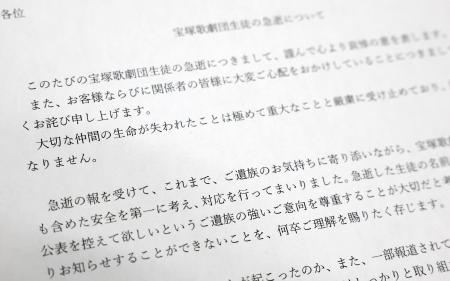 各位
宝塚歌劇団生徒の急逝について
このたびの宝塚歌劇団生徒の急逝につきまして、謹んで心より哀悼の意を表します。
また、お客様ならびに関係者の皆様に大変ご心配をおかけしていることにつきまして
くお詫び申し上げます。
大切な仲間の生命が失われたことは極めて重大なことと厳粛に受け止めており、
なりません。
急逝の報を受けて、これまで、ご遺族のお気持ちに寄り添いながら、宝塚歌
も含めた安全を第一に考え、対応を行ってまいりました。急逝した生徒の名前
公表を控えて欲しいというご遺族の強いご意向を尊重することが大切だと考
りお知らせすることができないことを、何卒ご理解を賜りたく存じます。
が起こったのか、また、一部報道されて
しっかりと取り組